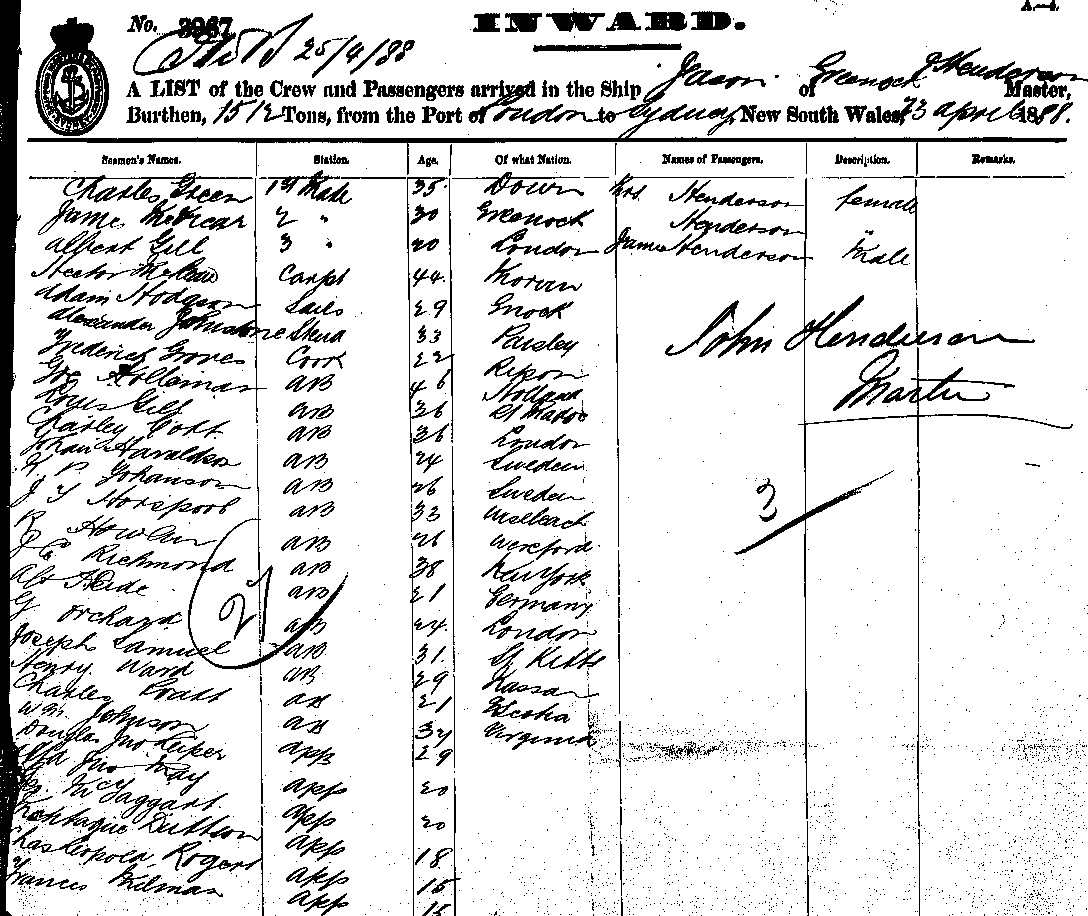 A.—4.
No. 3967 INWARD.
25/4/88
A LIST of the Crew and Passengers arrived in the Ship Jason of Greenock J Henderson Master,
Burthen, 1512 Tons, from the Port of London to Sydney, New South Wales, 23 April 1888.
Seamen's Names. Station. Age. Of what Nation. Names of Passengers. Description. Remarks.
Charles Green 1st Mate 35 Down Mrs Henderson female
James 2 " 30 Greenock Henderson "
Albert Gill 3 " 20 London James Henderson Male
Hector McLean Carpt 44
Adam Hodgson Sails 29 Gnock
Alexander Johnstone Stewd 33 Paisley
John Henderson
Frederick Groves Cook 22 Ripon
Holleman AB 46
Master
Louis Gilf AB 36
Charley AB 36 London
Johan Haraldson AB 24 Sweden
Johanson AB 26 Sweden
3
J Y Horspool AB 33
R Howan AB 26 Wereford
Richmond AB 38 New York
Heide AB 21 Germany
21
G Orchard AB 24 London
Joseph Samuel AB 31 St Kitts
Henry Ward AB 29 Nassau
Charles Pratt AB 21 NScotia
Wm Johnson AB 34 Virginia
Douglas Jno Leiper App 29
Jno Kay App 20
McTaggart App 20
Montague Duttson App 18
Chas Leopold Rogers App 15
Frances App 15